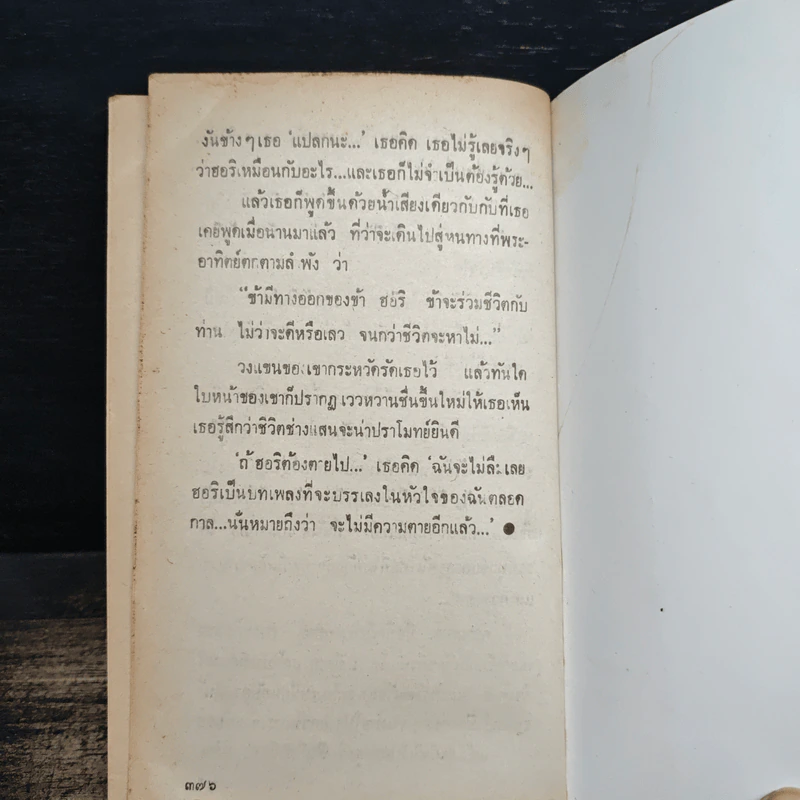 งันข้างๆเธอ 'แปลกนะ...' เธอคิด เธอไม่รู้เลยจริงๆ
ว่าฮอริเหมือนกับอะไร...และเธอก็ไม่จำเป็นต้องรู้ด้วย...
แล้วเธอก็พูดขึ้นด้วยน้ำเสียงเดียวกับกับที่เธอ
เคยพูดเมื่อนานมาแล้ว ที่ว่าจะเดินไปสู่หนทางที่พระ-
อาทิตย์ตกตามลำพัง ว่า
"ข้ามีทางออกของข้า ฮอริ ข้าจะร่วมชีวิตกับ
ท่าน ไม่ว่าจะดีหรือเลว จนกว่าชีวิตจะหาไม่..."
วงแขนของเขากระหวัดรัดเธอไว้ แล้วทันใด
ใบหน้าของเขาก็ปรากฏแววหวานชื่นขึ้นใหม่ให้เธอเห็น
เธอรู้สึกว่าชีวิตช่างแสนจะน่าปราโมทย์ยินดี
'ถ้าฮอริต้องตายไป...' เธอคิด 'ฉันจะไม่ลืมเลย
ฮอริเป็นบทเพลงที่จะบรรเลงในหัวใจของฉันตลอด
กาล...นั่นหมายถึงว่า จะไม่มีความตายอีกแล้ว...' ●
๓๗๖